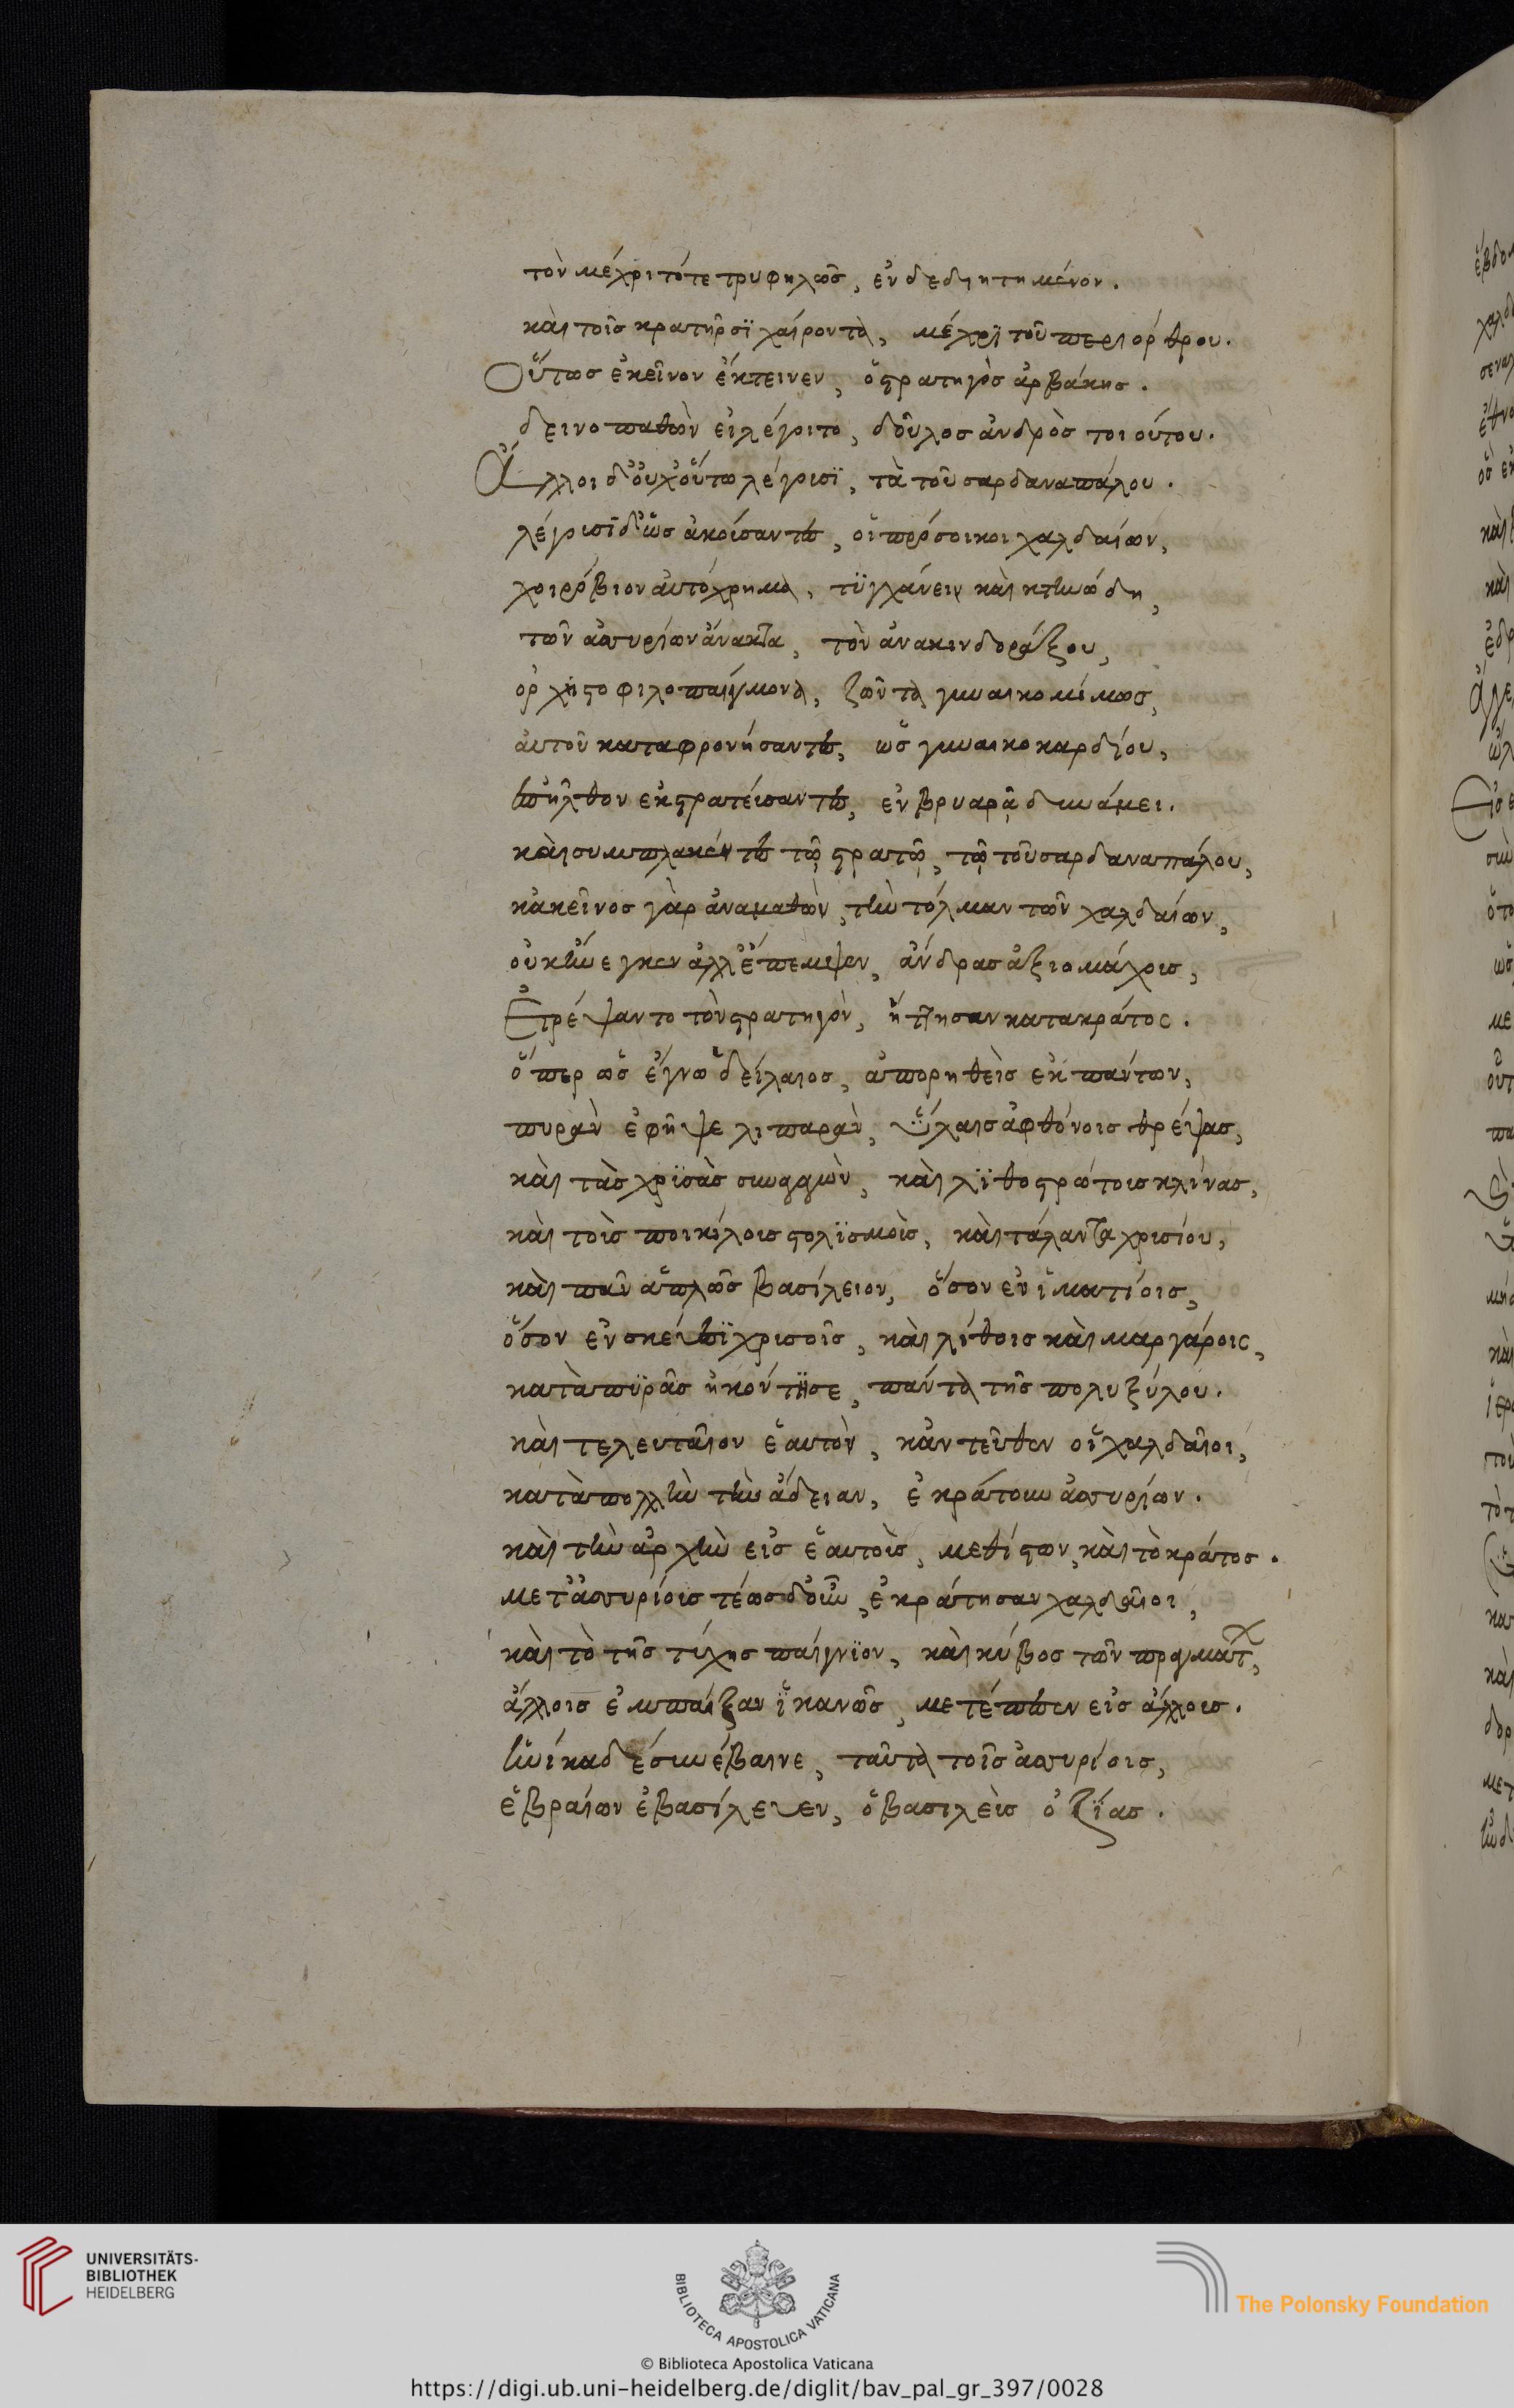 τὸν μέχρι τότε τρυφηλῶς, ἐνδεδιητημένον.
καὶ τοῖς κρατῆρσϊ χαίροντα, μέχρϊ τοῦ περιόρθρου.
Οὕτως ἐκεῖνον ἔκτεινεν, ὁ στρατηγὸς ἀρβάκης.
δεινοπαθῶν εἰ λέγοιτο, δοῦλος ἀνδρὸς τοιούτου.
Ἄλλοι δ' οὐχ οὕτω λέγουσϊ, τὰ τοῦ σαρδαναπάλου.
λέγουσϊ δ' ὡς ἀκούσαντες, οἱ πρόσοικοι χαλδαίων,
χοιρόβιον αὐτόχρημα, τϋγχάνειν καὶ κτηνώδη,
τῶν ἀσσυρίων ἄνακτα, τὸν ἀνακινδοράξου,
ὀρχηστοφιλοπαίγμονα, ζῶντα γυναικομίμως,
αὐτοῦ καταφρονήσαντες, ὡς γυναικοκαρδίου,
ἐπῆλθον ἐκστρατεύσαντες, ἐν βρυαρᾷ δυνάμει.
καὶ συμπλακέντες τῷ στρατῷ, τῷ τοῦ σαρδαναπάλου,
κἀκεῖνος γὰρ ἀναμαθὼν, τὴν τόλμαν τῶν χαλδαίων,
οὐκ ἤνεγκεν ἀλλ' ἔπεμψεν, ἄνδρας ἀξιομάχους,
Ἐτρέψαντο τὸν στρατηγὸν, ἥττησαν κατακράτος.
ὅπερ ὡς ἔγνω ὁ δείλαιος, ἀπορηθεὶς ἐκ πάντων,
πυρὰν ἐφῆψε λιπαρὰν, ὕλαις ἀφθόνοις θρέψας,
καὶ τὰς χρϋσὰς συναγαγὼν, καὶ λϊθοστρώτους κλίνας,
καὶ τοὺς ποικίλους στολϊσμοὺς, καὶ τάλαντα χρυσίου,
καὶ πᾶν ἁπλῶς βασίλειον, ὅσον ἐν ἱματίοις,
ὅσον ἐν σκεύεσϊ χρυσοῖς, καὶ λίθοις καὶ μαργάροις,
κατὰ πϋρᾶς ἠκόντϊσε, πάντα τῆς πολυξύλου.
καὶ τελευταῖον ἑαυτὸν, κἀντεῦθεν οἱ χαλδαῖοι,
κατὰ πολλὴν τὴν ἄδειαν, ἐκράτουν ἀσσυρίων.
καὶ τὴν ἀρχὴν εἰς ἑαυτοὺς, μεθίστων, καὶ τὸ κράτος.
μετ' ἀσσυρίους τέως δ' οὖν, ἐκράτησαν χαλδαῖοι,
καὶ τὸ τῆς τύχης παίγνϊον, καὶ κύβος τῶν πραγμάτ,
ἄλλοις ἐμπαίξαν ἱκανῶς, μετέπεσεν εἰς ἄλλους.
ἡνίκα δὲ συνέβαινε, ταῦτα τοῖς ἀσσυρίοις,
ἑβραίων ἐβασίλευεν, ὁ βασιλεὺς ὀζϊας.
UNIVERSITÄTS-
BIBLIOTHEK
HEIDELBERG
BIBLIOTECA APOSTOLICA VATICANA
The Polonsky Foundation
© Biblioteca Apostolica Vaticana
https://digi.ub.uni-heidelberg.de/diglit/bav_pal_gr_397/0028